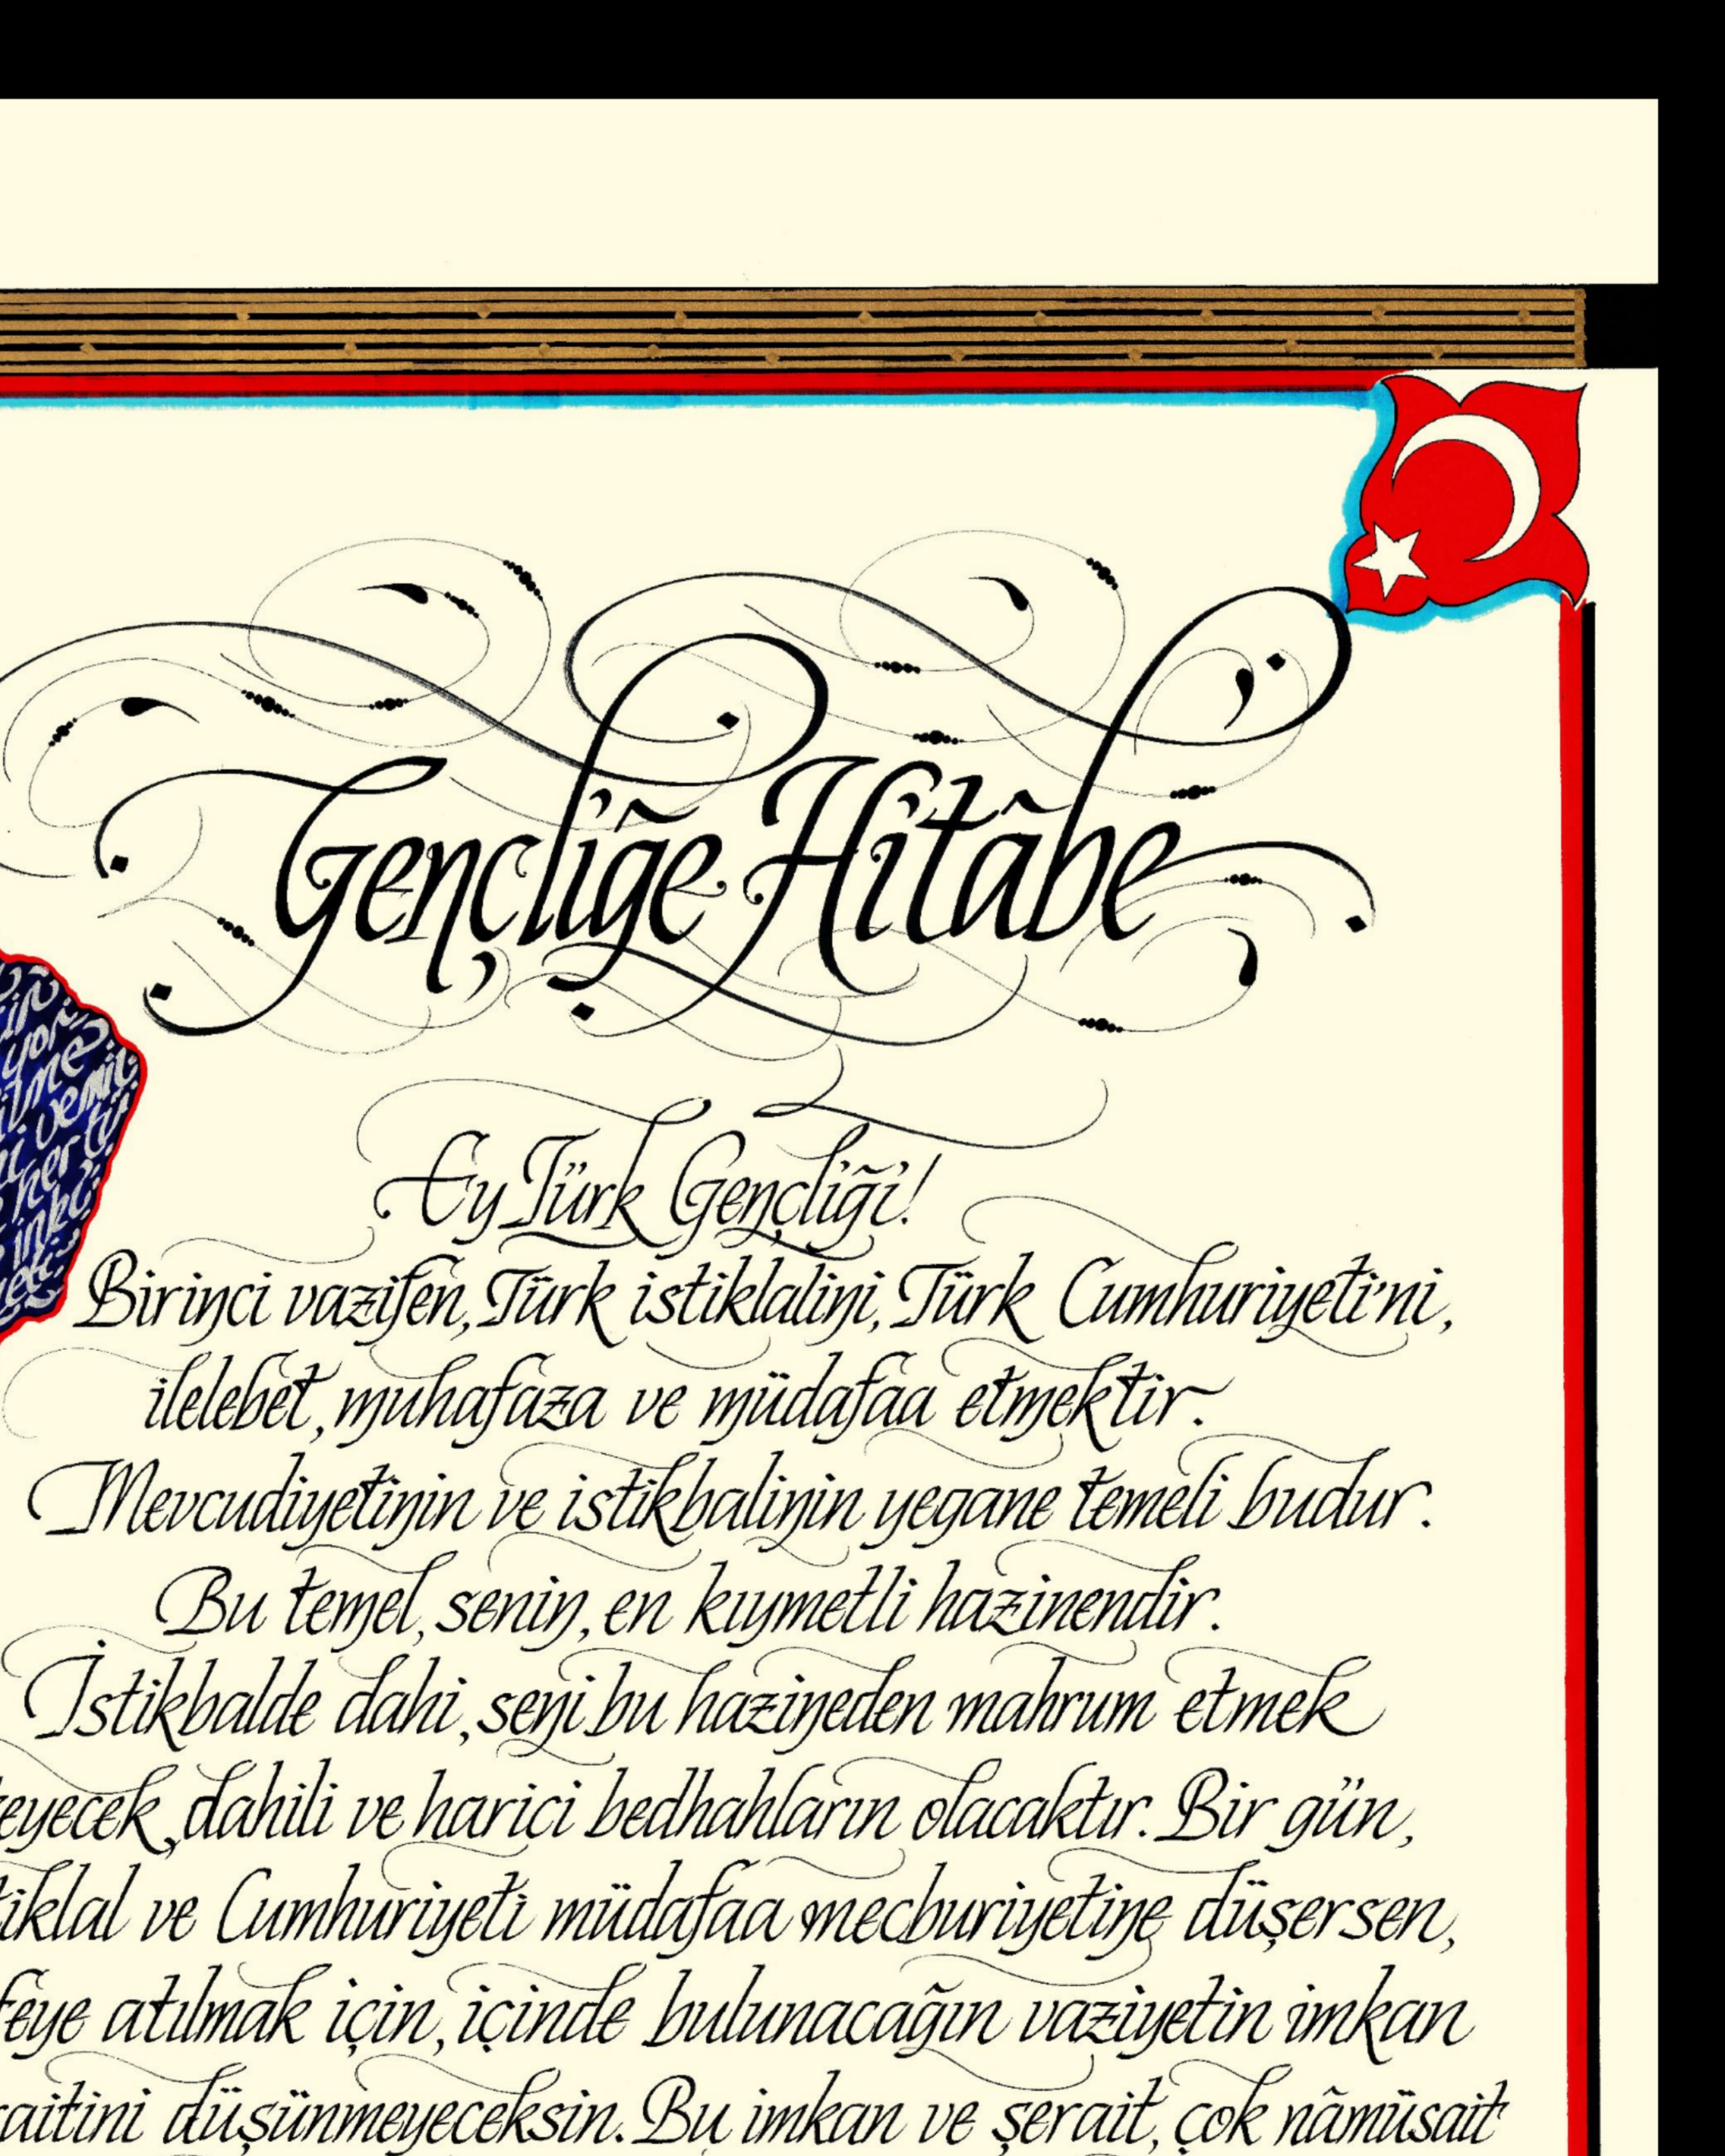 Gençliğe Hitâbe
Ey Türk Gençliği!
Birinci vazifen, Türk istiklalini, Türk Cumhuriyeti'ni,
ilelebet, muhafaza ve müdafaa etmektir.
Mevcudiyetinin ve istikbalinin yegane temeli budur.
Bu temel, senin, en kıymetli hazinendir.
İstikbalde dahi, seni bu hazineden mahrum etmek
eyecek, dahili ve harici bedhahların olacaktır. Bir gün,
iklal ve Cumhuriyeti müdafaa mecburiyetine düşersen,
feye atılmak için, içinde bulunacağın vaziyetin imkan
aitini düşünmeyeceksin. Bu imkan ve şerait, çok nâmüsait
in
yor
her